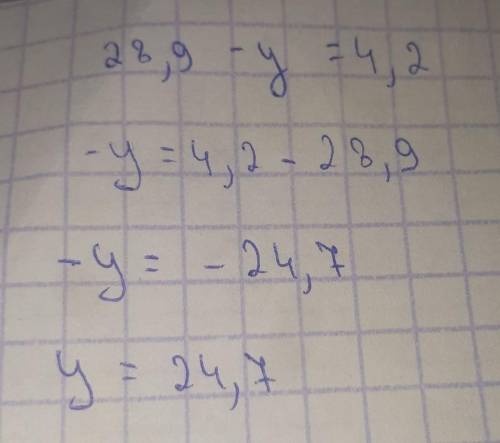 28,9 - y = 4,2
- y = 4,2 - 28,9
- y = - 24,7
y = 24,7